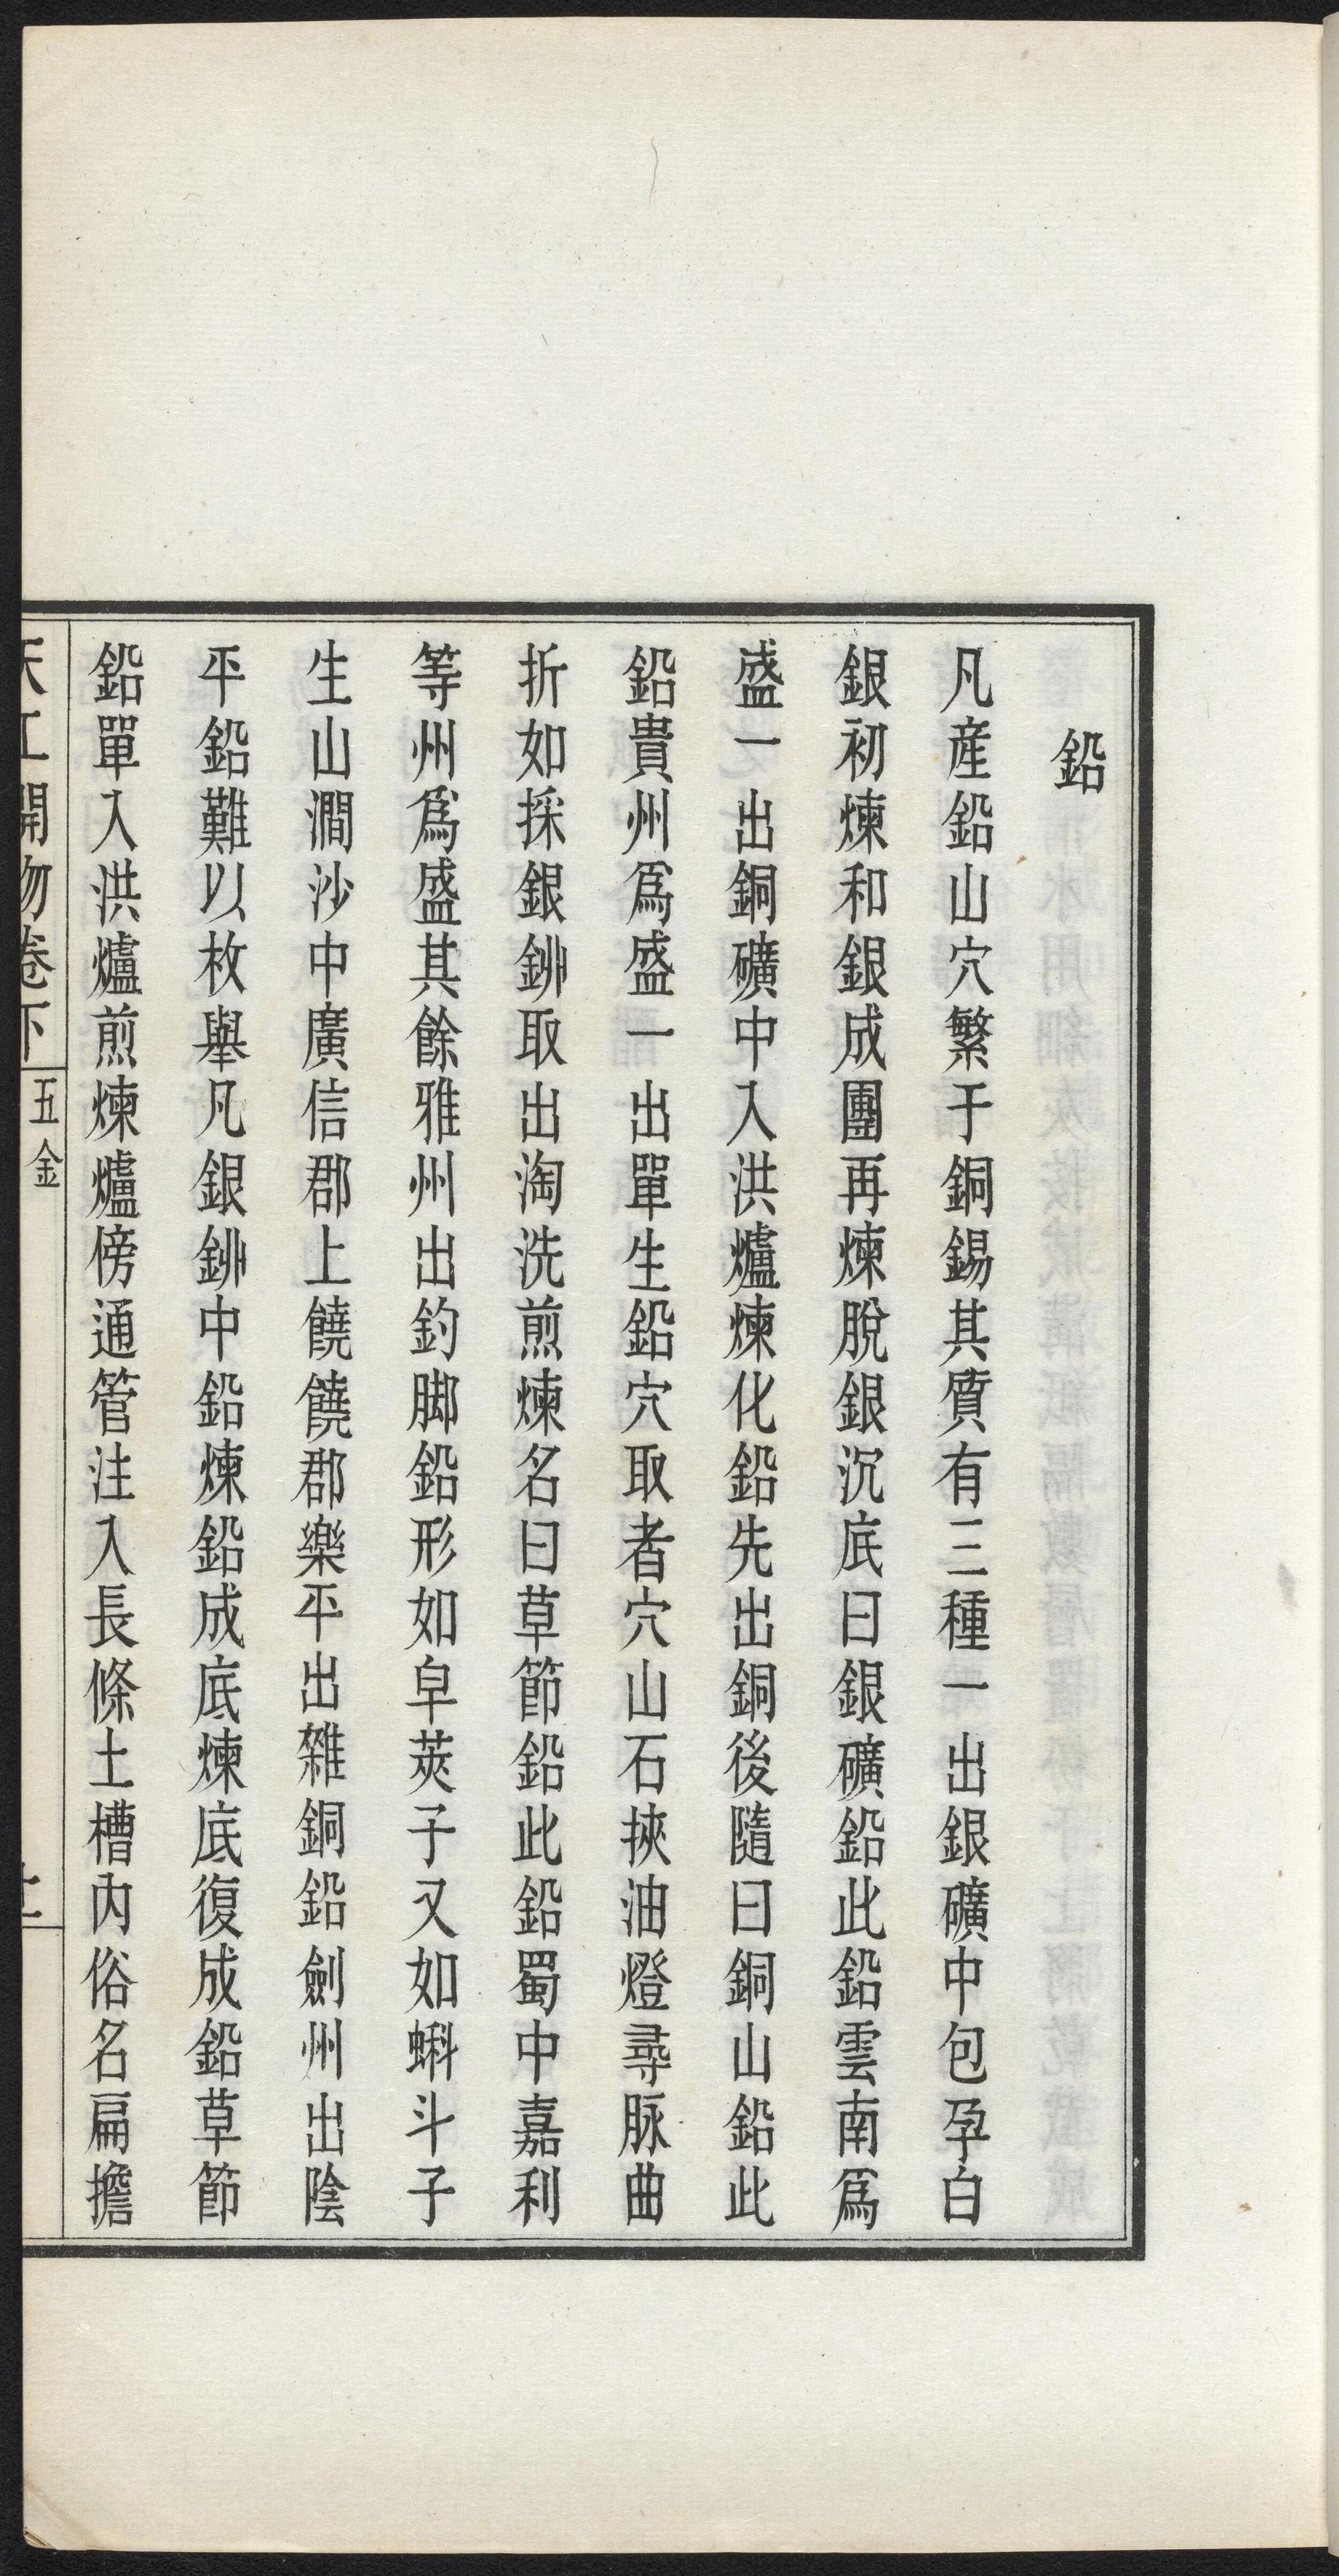 鉛
凡産鉛山穴繁于銅錫其質有三種一出銀礦中包孕白
銀初煉和銀成團再煉脫銀沉底曰銀礦鉛此鉛雲南爲
盛一出銅礦中入洪爐煉化鉛先出銅後隨曰銅山鉛此
鉛貴州爲盛一出單生鉛穴取者穴山石挾油燈尋脉曲
折如採銀鉚取出淘洗煎煉名曰草節鉛此鉛蜀中嘉利
等州爲盛其餘雅州出釣脚鉛形如皁莢子又如蝌斗子
生山澗沙中廣信郡上饒饒郡樂平出雜銅鉛劍州出陰
平鉛難以枚舉凡銀鉚中鉛煉鉛成底煉底復成鉛草節
鉛單入洪爐煎煉爐傍通管注入長條土槽內俗名扁擔
天工開物卷下 五金